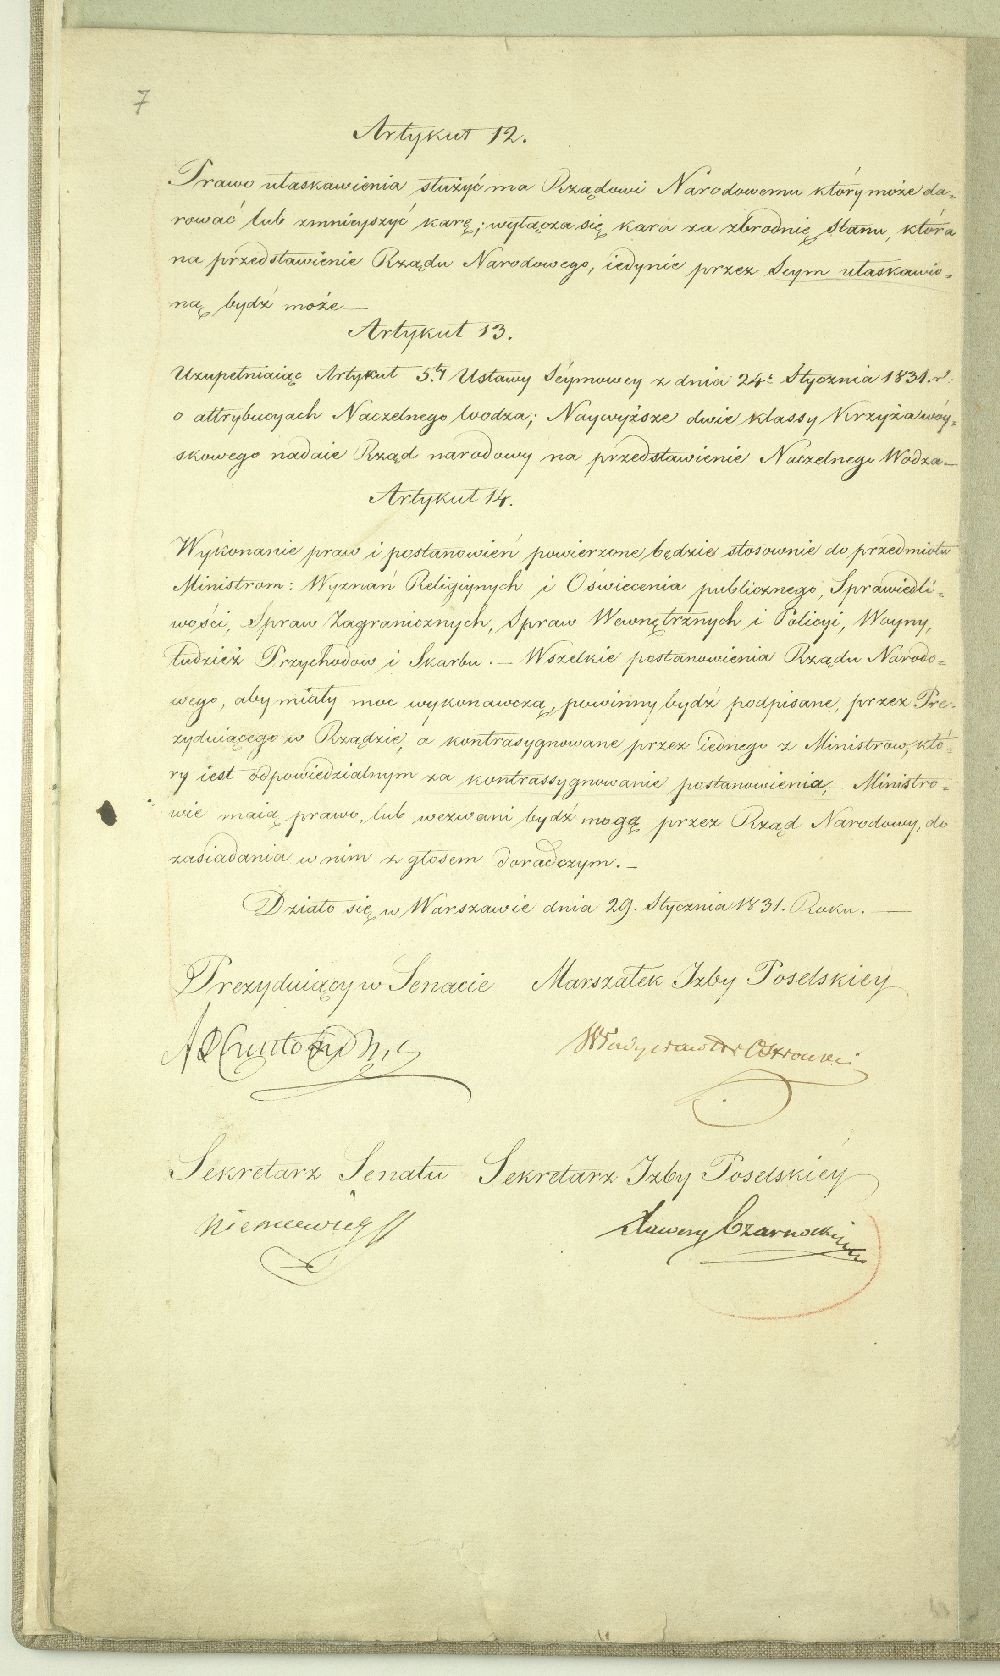 7
Artykuł 12.
Prawo ułaskawienia służyć ma Rządowi Narodowemu który może da-
rować lub zmnieyszyć karę; wyłącza się kara za zbrodnię Stanu, która
na przedstawienie Rządu Narodowego, iedynie przez Seym ułaskawio-
ną bydź może —
Artykuł 13.
Uzupełniaiąc Artykuł 5.ty Ustawy Séymowey z dnia 24.º Stycznia 1831. r.
o attrybucyach Naczelnego Wodza; Naywyższe dwie klassy Krzyża woy-
skowego nadaie Rząd narodowy na przedstawienie Naczelnego Wodza —
Artykuł 14.
Wykonanie praw i postanowień powierzone będzie stosownie do przedmiotu
Ministrom: Wyznań Religiynych i Oświecenia publicznego, Sprawiedli-
wości, Spraw Zagranicznych, Spraw Wewnętrznych i Policyi, Woyny,
tudzież Przychodów i Skarbu. — Wszelkie postanowienia Rządu Narodo-
wego, aby miały moc wykonawczą, powinny bydź podpisane, przez Pre-
zyduiącego w Rządzie, a kontrasygnowane przez iednego z Ministrów, któ-
ry iest odpowiedzialnym za kontrassygnowanie postanowienia, Ministro-
wie maią prawo, lub wezwani bydź mogą przez Rząd Narodowy, do
zasiadania w nim z głosem doradczym. —
Działo się w Warszawie dnia 29. Stycznia 1831. Roku. —
Prezyduiący w Senacie Marszałek Izby Poselskiey
Władysław Ostrowski
Sekretarz Senatu Sekretarz Izby Poselskiéy
Niemcewicz
Xawery Czarnocki